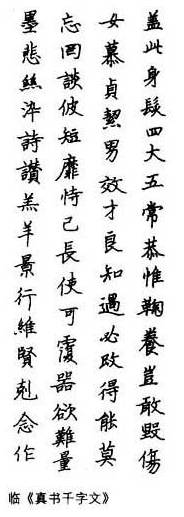 蓋此身髮四大五常恭惟鞠養豈敢毀傷
女慕貞絜男效才良知過必改得能莫
忘罔談彼短靡恃己長使可覆器欲難量
墨悲絲染詩讚羔羊景行維賢剋念作
临《真书千字文》